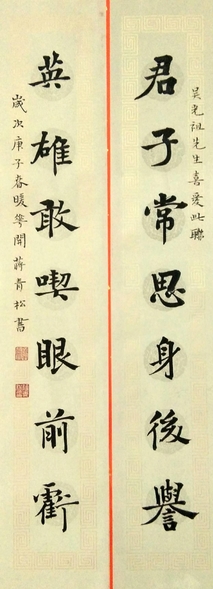 吴光祖先生喜爱此聯
君子常思身後譽
英雄敢喫眼前虧
歲次庚子春暖華開蔣青松書